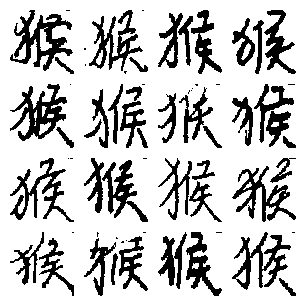 猴猴猴猴
猴猴猴猴
猴猴猴猴
猴猴猴猴